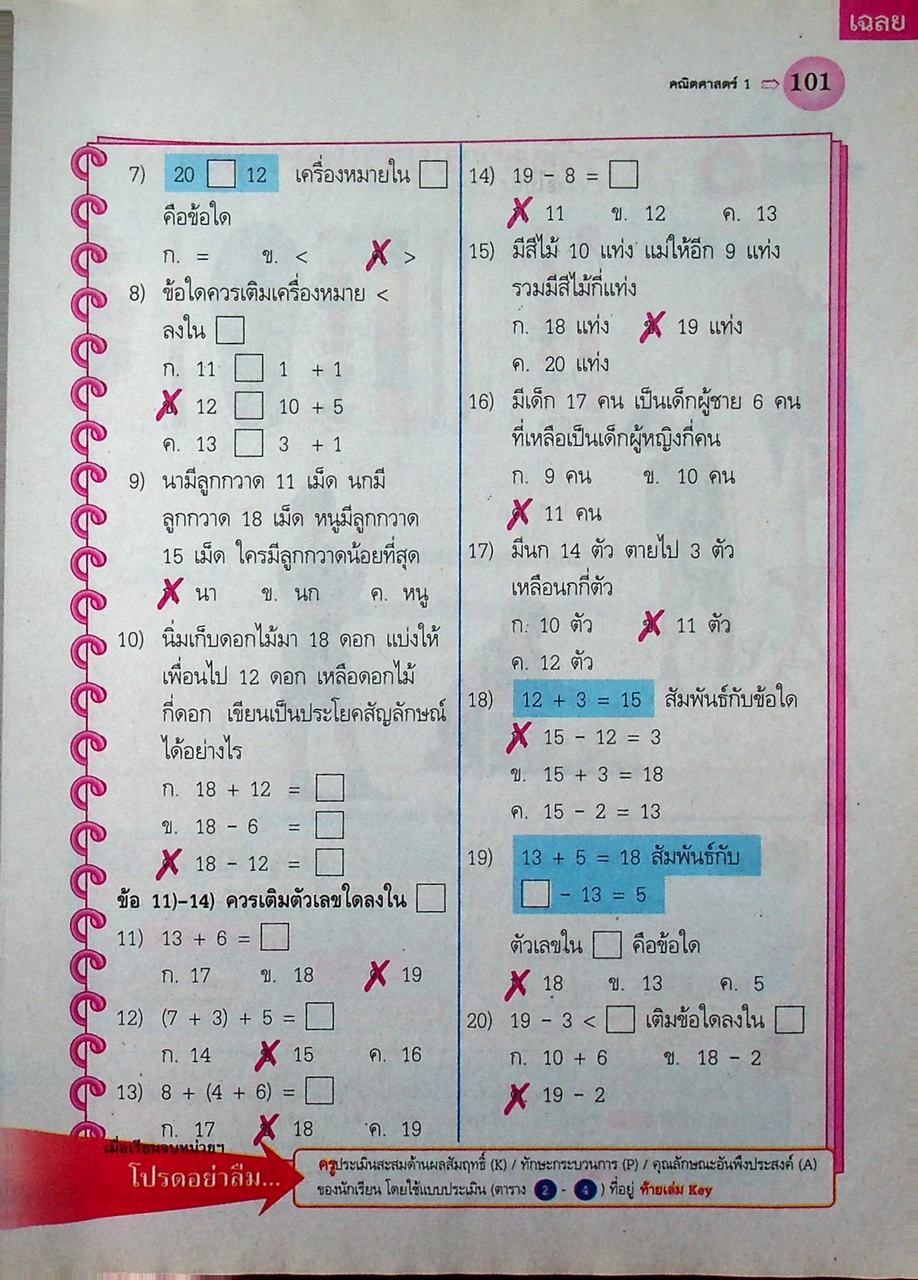 เฉลย
คณิตศาสตร์ 1 ⇨ 101
7) 20 □ 12 เครื่องหมายใน □
คือข้อใด
ก. = ข. < ✗ >
8) ข้อใดควรเติมเครื่องหมาย <
ลงใน □
ก. 11 □ 1 + 1
✗ 12 □ 10 + 5
ค. 13 □ 3 + 1
9) นามีลูกกวาด 11 เม็ด นกมี
ลูกกวาด 18 เม็ด หนูมีลูกกวาด
15 เม็ด ใครมีลูกกวาดน้อยที่สุด
✗ นา ข. นก ค. หนู
10) นิ่มเก็บดอกไม้มา 18 ดอก แบ่งให้
เพื่อนไป 12 ดอก เหลือดอกไม้
กี่ดอก เขียนเป็นประโยคสัญลักษณ์
ได้อย่างไร
ก. 18 + 12 = □
ข. 18 - 6 = □
✗ 18 - 12 = □
ข้อ 11)-14) ควรเติมตัวเลขใดลงใน □
11) 13 + 6 = □
ก. 17 ข. 18 ✗ 19
12) (7 + 3) + 5 = □
ก. 14 ✗ 15 ค. 16
13) 8 + (4 + 6) = □
ก. 17 ✗ 18 ค. 19
14) 19 - 8 = □
✗ 11 ข. 12 ค. 13
15) มีสีไม้ 10 แท่ง แม่ให้อีก 9 แท่ง
รวมมีสีไม้กี่แท่ง
ก. 18 แท่ง ✗ 19 แท่ง
ค. 20 แท่ง
16) มีเด็ก 17 คน เป็นเด็กผู้ชาย 6 คน
ที่เหลือเป็นเด็กผู้หญิงกี่คน
ก. 9 คน ข. 10 คน
✗ 11 คน
17) มีนก 14 ตัว ตายไป 3 ตัว
เหลือนกกี่ตัว
ก. 10 ตัว ✗ 11 ตัว
ค. 12 ตัว
18) 12 + 3 = 15 สัมพันธ์กับข้อใด
✗ 15 - 12 = 3
ข. 15 + 3 = 18
ค. 15 - 2 = 13
19) 13 + 5 = 18 สัมพันธ์กับ
□ - 13 = 5
ตัวเลขใน □ คือข้อใด
✗ 18 ข. 13 ค. 5
20) 19 - 3 < □ เติมข้อใดลงใน □
ก. 10 + 6 ข. 18 - 2
✗ 19 - 2
เมื่อเรียนจบหน่วยฯ
โปรดอย่าลืม...
ครูประเมินสะสมด้านผลสัมฤทธิ์ (K) / ทักษะกระบวนการ (P) / คุณลักษณะอันพึงประสงค์ (A)
ของนักเรียน โดยใช้แบบประเมิน (ตาราง 2 - 4) ที่อยู่ ท้ายเล่ม Key